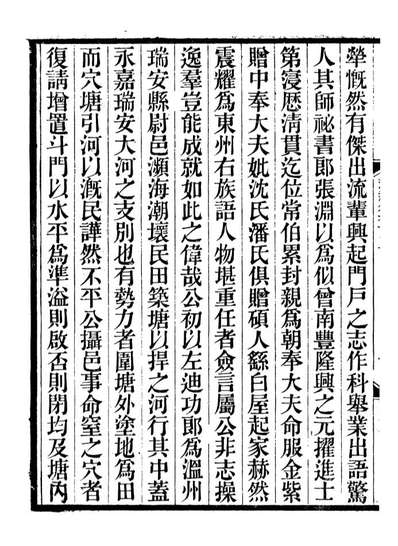 犖慨然有傑出流輩興起門戸之志作科舉業出語驚
人其師祕書郎張淵以爲似曾南豐隆興之元擢進士
第寖歷清貫迄位常伯累封親爲朝奉大夫命服金紫
贈中奉大夫妣沈氏潘氏俱贈碩人繇白屋起家赫然
震耀爲東州右族語人物堪重任者僉言屬公非志操
逸羣豈能成就如此之偉哉公初以左迪功郎爲溫州
瑞安縣尉邑瀕海潮壞民田築塘以捍之河行其中蓋
永嘉瑞安大河之支别也有勢力者圍塘外塗地爲田
而穴塘引河以漑民譁然不平公攝邑事命窒之穴者
復請增置斗門以水平爲準溢則啟否則閉均及塘内